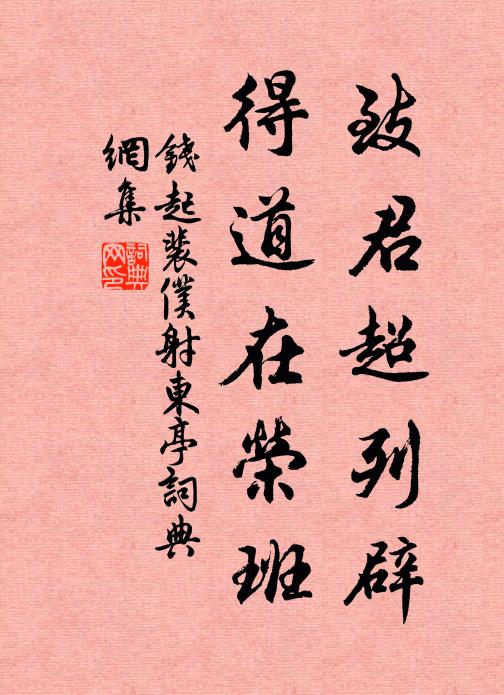 致君超列辟
得道在榮班
錢起裴僕射東亭詞典
網集
詞典
网印